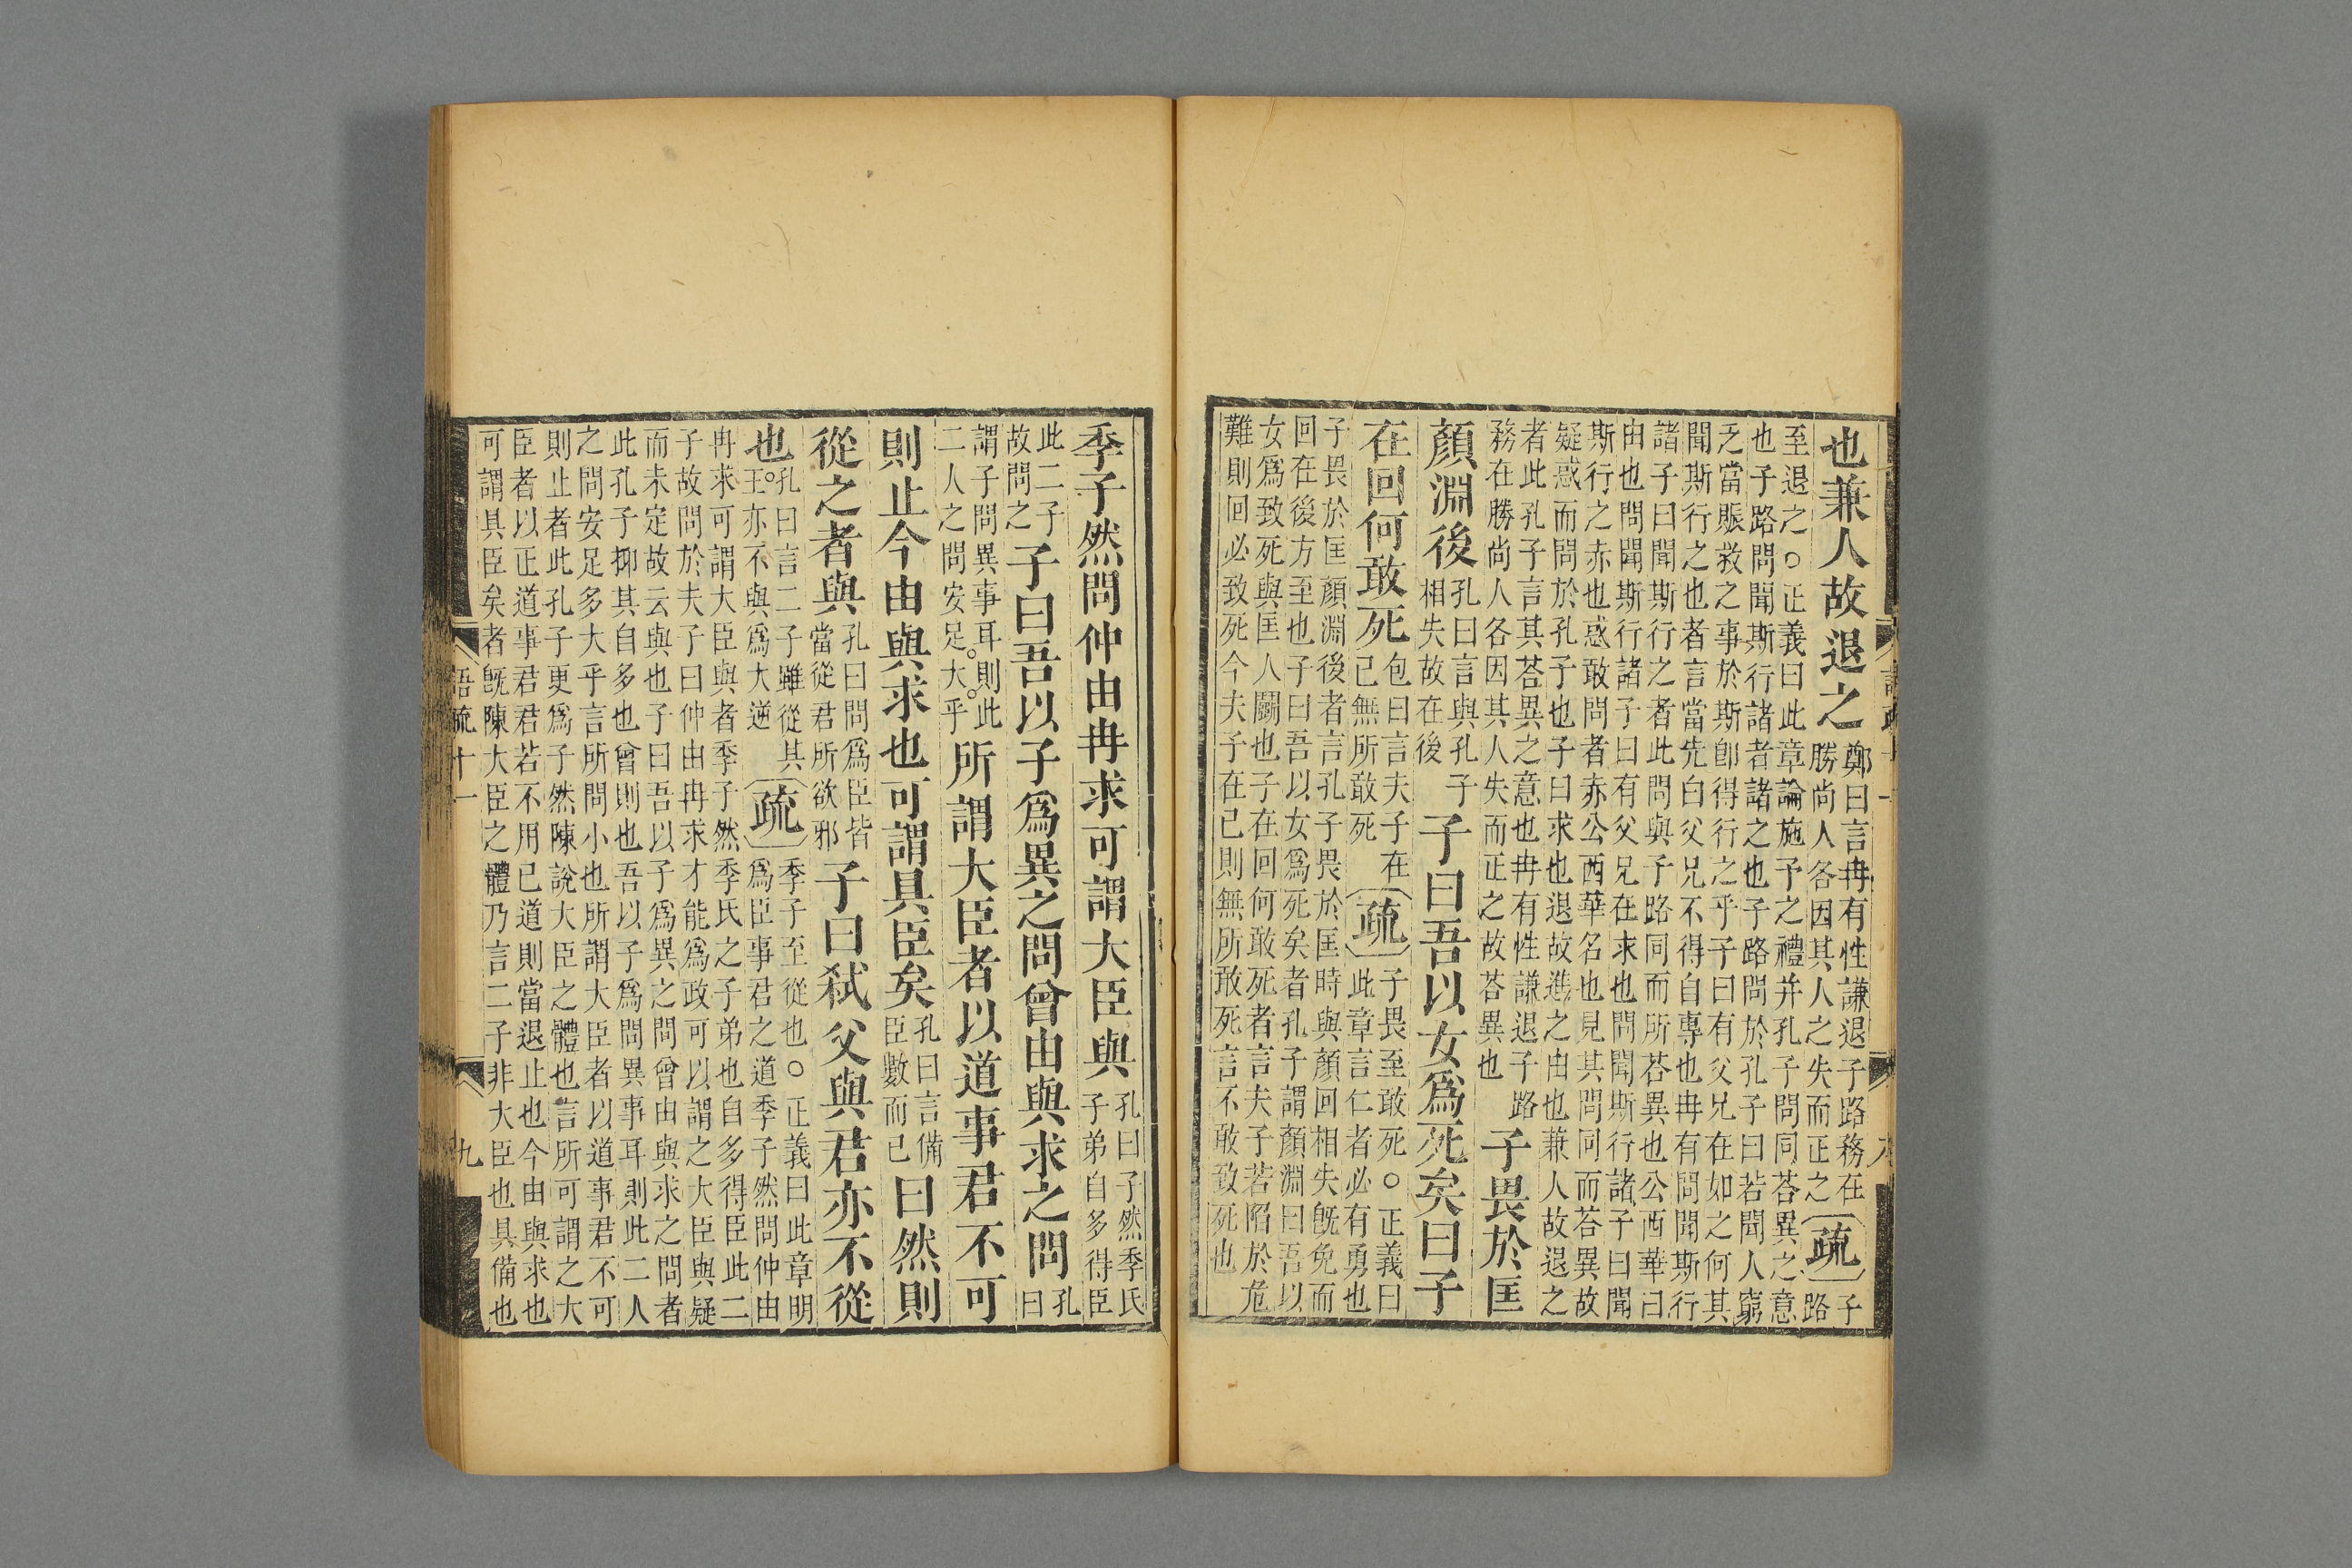 也兼人故退之鄭曰言冉有性謙退子路務在
勝尚人各因其人之失而正之疏子
路
至退之○正義曰此章論施予之禮并孔子問同荅異之意
也子路問聞斯行諸者諸之也子路問於孔子曰若聞人窮
乏當賑救之事於斯卽得行之乎子曰有父兄在如之何其
聞斯行之也者言當先白父兄不得自專也冉有問聞斯行
諸子曰聞斯行之者此問與子路同而所荅異也公西華曰
由也問聞斯行諸子曰有父兄在求也問聞斯行諸子曰聞
斯行之赤也惑敢問者赤公西華名也見其問同而荅異故
疑惑而問於孔子也子曰求也退故進之由也兼人故退之
者此孔子言其荅異之意也冉有性謙退子路
務在勝尚人各因其人失而正之故荅異也子畏於匡
顏淵後孔曰言與孔子
相失故在後子曰吾以女爲死矣曰子
在回何敢死包曰言夫子在
己無所敢死疏子畏至敢死○正義曰
此章言仁者必有勇也
子畏於匡顏淵後者言孔子畏於匡時與顏回相失旣免而
回在後方至也子曰吾以女爲死矣者孔子謂顏淵曰吾以
女爲致死與匡人鬭也子在回何敢死者言夫子若陷於危
難則回必致死今夫子在己則無所敢死言不敢致死也
季子然問仲由冉求可謂大臣與孔曰子然季氏
子弟自多得臣
此二子
故問之子曰吾以子爲異之問曾由與求之問孔
曰
謂子問異事耳則此
二人之問安足大乎所謂大臣者以道事君不可
則止今由與求也可謂具臣矣孔曰言備
臣數而已曰然則
從之者與孔曰問爲臣皆
當從君所欲邪子曰弒父與君亦不從
也孔曰言二子雖從其
主亦不與爲大逆疏季子至從也○正義曰此章明
爲臣事君之道季子然問仲由
冉求可謂大臣與者季子然季氏之子弟也自多得臣此二
子故問於夫子曰仲由冉求才能爲政可以謂之大臣與疑
而未定故云與也子曰吾以子爲異之問曾由與求之問者
此孔子抑其自多也曾則也吾以子爲問異事耳則此二人
之問安足多大乎言所問小也所謂大臣者以道事君不可
則止者此孔子更爲子然陳說大臣之體也言所可謂之大
臣者以正道事君君若不用己道則當退止也今由與求也
可謂具臣矣者旣陳大臣之體乃言二子非大臣也具備也
語疏十一
九